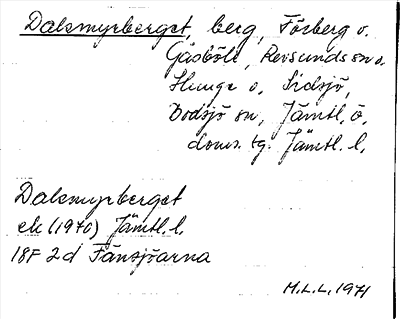 Dalsmyrberget, berg, Fösberg o.
Gåsböle, Revsunds sn o.
Hunge o. Sidsjö,
Bodsjö sn, Jämtl. ö.
doms. tg. Jämtl. l.
Dalsmyrberget
ek (1970) Jämtl. l.
18F 2d Fänsjöarna
M.L.L. 1971